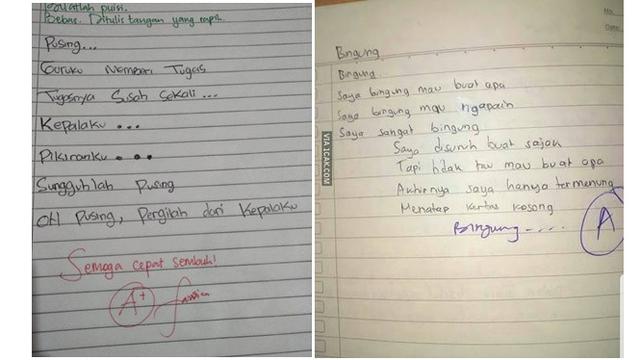 buatlah puisi.
Bebas. Ditulis tangan yang rapi.
Pusing...
Guruku Memberi Tugas
Tugasnya Susah Sekali ...
Kepalaku ...
Pikiranku...
Sungguhlah Pusing
Oh Pusing, Pergilah dari Kepalaku
Semoga cepat sembuh!
A+
VIA 1CAK.COM
No.
Date
Bingung
Bingung
Saya bingung mau buat apa
Saya bingung mau ngapain
Saya sangat bingung
Saya disuruh buat sajak
Tapi tidak tau mau buat apa
Akhirnya saya hanya termenung
Menatap kertas kosong
Bingung.....
A